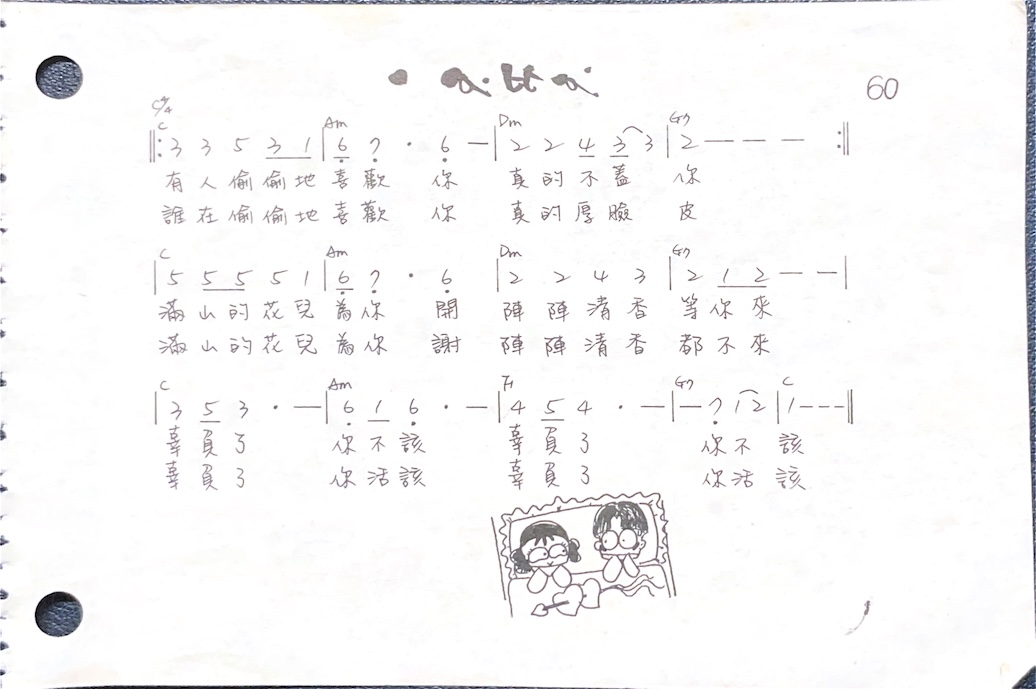 60
C 4/4
C Am Dm G7
‖: 3 3 5 3 1 | 6 7 · 6 — | 2 2 4 3 3 | 2 — — — :‖
有人偷偷地喜歡 你 真的不蓋 你
誰在偷偷地喜歡 你 真的厚臉 皮
C Am Dm G7
| 5 5 5 5 1 | 6 7 · 6 | 2 2 4 3 | 2 1 2 — — |
滿山的花兒為你 開 陣陣清香 等你來
滿山的花兒為你 謝 陣陣清香 都不來
C Am F G7 C
| 3 5 3 · — | 6 1 6 · — | 4 5 4 · — | — 7 1 2 | 1 - - - ‖
辜負了 你不該 辜負了 你不 該
辜負了 你活該 辜負了 你活 該